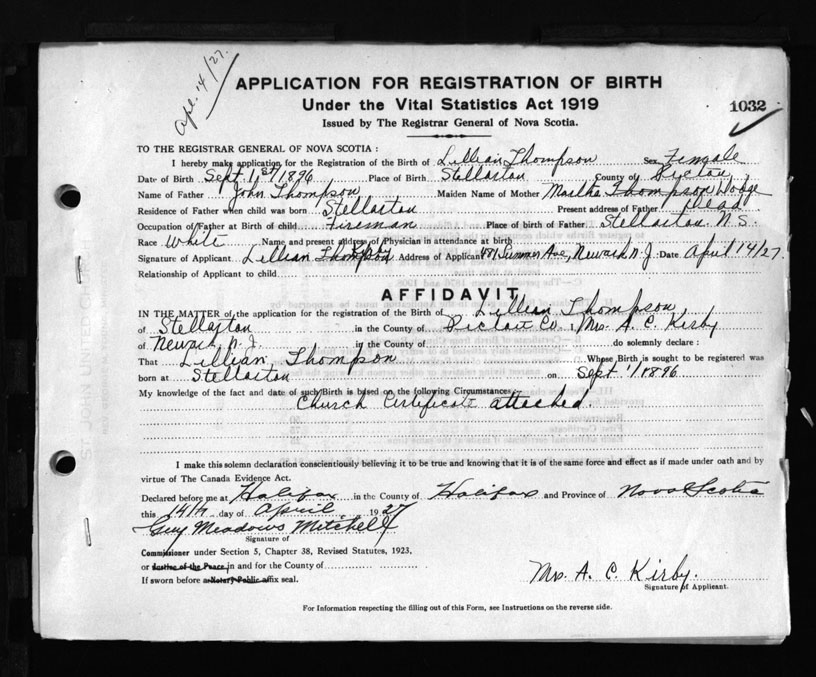 Apl. 14/27.
APPLICATION FOR REGISTRATION OF BIRTH
Under the Vital Statistics Act 1919
1032
Issued by The Registrar General of Nova Scotia.
TO THE REGISTRAR GENERAL OF NOVA SCOTIA:
I hereby make application for the Registration of the Birth of Lillian Thompson Sex Female
Date of Birth Sept 1st/1896 Place of Birth Stellarton County of Pictou
Name of Father John Thompson Maiden Name of Mother Martha Thompson Dodge
Residence of Father when child was born Stellarton Present address of Father Dead
Occupation of Father at Birth of child Fireman Place of birth of Father Stellarton N.S.
Race White Name and present address of Physician in attendance at birth
Signature of Applicant Lillian Thompson Kirby Address of Applicant Ave, Newark N.J. Date April 14/27.
Relationship of Applicant to child
AFFIDAVIT
IN THE MATTER of the application for the registration of the Birth of Lillian Thompson
of Stellarton in the County of Pictou Co. I, Mrs. A. C. Kirby
of Newark, N.J. in the County of do solemnly declare:
That Lillian Thompson Whose Birth is sought to be registered was
born at Stellarton on Sept 1/1896
My knowledge of the fact and date of such Birth is based on the following Circumstances:-
Church Certificate attached.
I make this solemn declaration conscientiously believing it to be true and knowing that it is of the same force and effect as if made under oath and by
virtue of The Canada Evidence Act.
Declared before me at Halifax in the County of Halifax and Province of Nova Scotia
this 14th day of April 1927
Guy Meadows Mitchell
Signature of
Commissioner under Section 5, Chapter 38, Revised Statutes, 1923,
or Justice of the Peace in and for the County of
If sworn before a Notary Public affix seal.
Mrs A. C. Kirby.
Signature of Applicant.
For Information respecting the filling out of this Form, see Instructions on the reverse side.